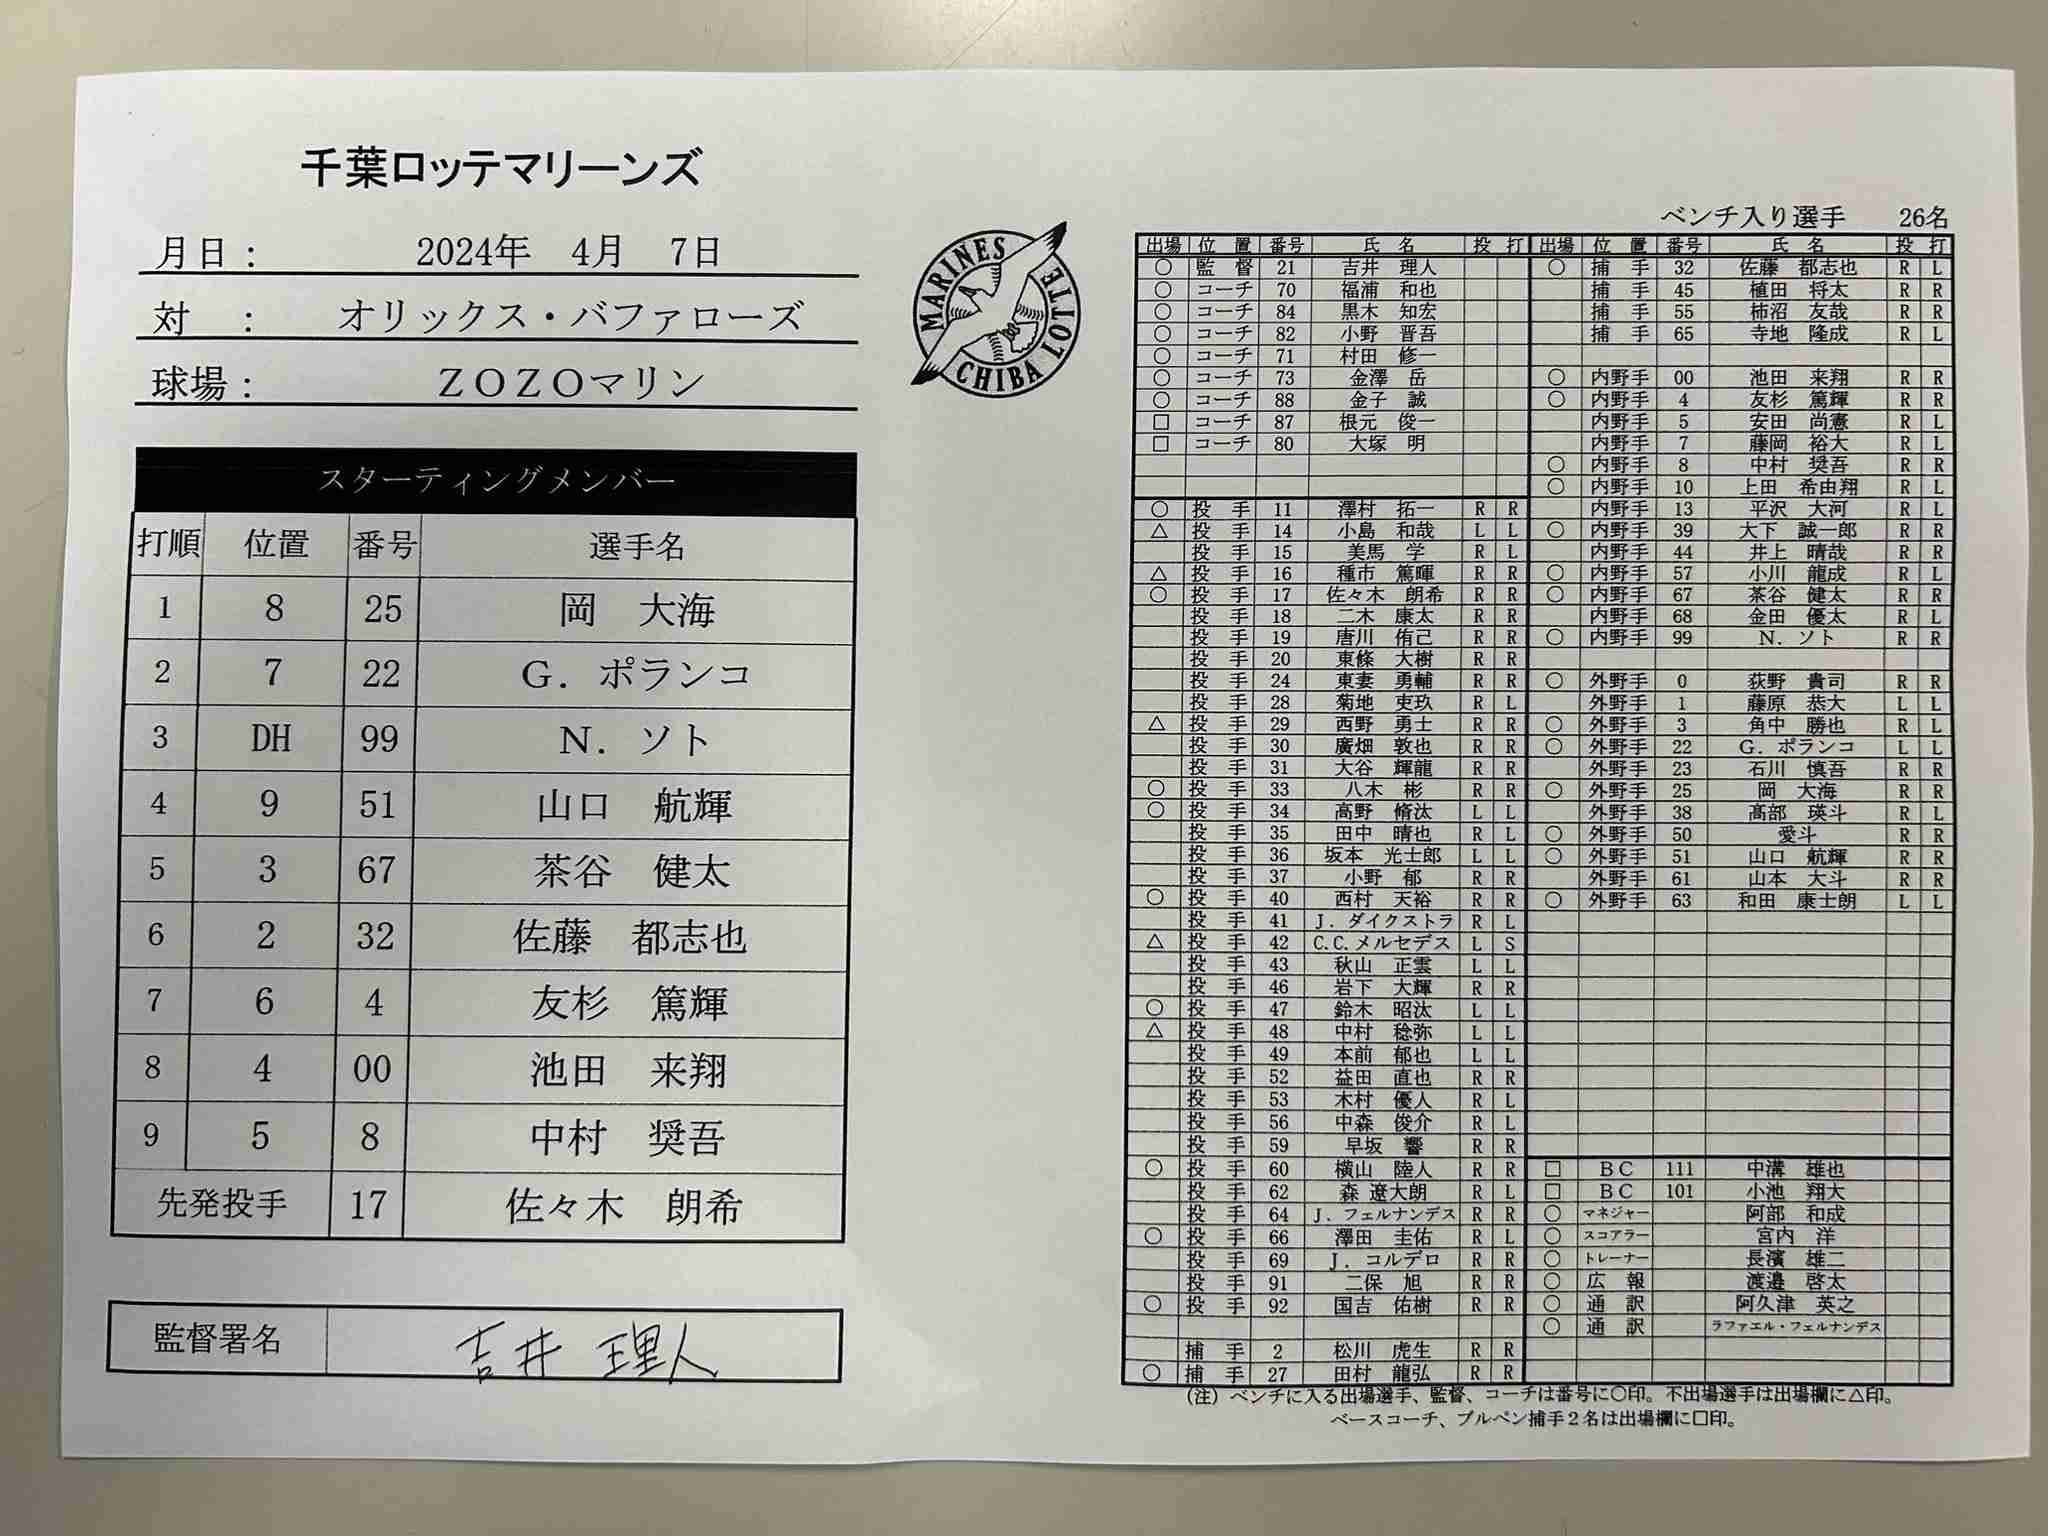 千葉ロッテマリーンズ
月日： 2024年 4月 7日
対 ： オリックス・バファローズ
球場： ＺＯＺＯマリン
MARINES
CHIBA LOTTE
スターティングメンバー
打順 位置 番号 選手名
1 8 25 岡 大海
2 7 22 Ｇ．ポランコ
3 DH 99 Ｎ．ソト
4 9 51 山口 航輝
5 3 67 茶谷 健太
6 2 32 佐藤 都志也
7 6 4 友杉 篤輝
8 4 00 池田 来翔
9 5 8 中村 奨吾
先発投手 17 佐々木 朗希
監督署名 吉井 理人
ベンチ入り選手 26名
出場 位置 番号 氏名 投 打
○ 監督 21 吉井 理人
○ コーチ 70 福浦 和也
○ コーチ 84 黒木 知宏
○ コーチ 82 小野 晋吾
○ コーチ 71 村田 修一
○ コーチ 73 金澤 岳
○ コーチ 88 金子 誠
□ コーチ 87 根元 俊一
□ コーチ 80 大塚 明
○ 投手 11 澤村 拓一 R R
△ 投手 14 小島 和哉 L L
投手 15 美馬 学 R L
△ 投手 16 種市 篤暉 R R
○ 投手 17 佐々木 朗希 R R
投手 18 二木 康太 R R
投手 19 唐川 侑己 R R
投手 20 東條 大樹 R R
投手 24 東妻 勇輔 R R
投手 28 菊地 吏玖 R L
△ 投手 29 西野 勇士 R R
投手 30 廣畑 敦也 R R
投手 31 大谷 輝龍 R R
○ 投手 33 八木 彬 R R
○ 投手 34 高野 脩汰 L L
投手 35 田中 晴也 R L
投手 36 坂本 光士郎 L L
投手 37 小野 郁 R R
○ 投手 40 西村 天裕 R R
投手 41 Ｊ．ダイクストラ R L
△ 投手 42 C.C.メルセデス L S
投手 43 秋山 正雲 L L
投手 46 岩下 大輝 R R
○ 投手 47 鈴木 昭汰 L L
△ 投手 48 中村 稔弥 L L
投手 49 本前 郁也 L L
投手 52 益田 直也 R R
投手 53 木村 優人 R L
投手 56 中森 俊介 R L
投手 59 早坂 響 R R
○ 投手 60 横山 陸人 R R
投手 62 森 遼大朗 R L
投手 64 Ｊ．フェルナンデス R R
○ 投手 66 澤田 圭佑 R L
投手 69 Ｊ．コルデロ R R
投手 91 二保 旭 R R
○ 投手 92 国吉 佑樹 R R
捕手 2 松川 虎生 R R
○ 捕手 27 田村 龍弘 R R
出場 位置 番号 氏名 投 打
○ 捕手 32 佐藤 都志也 R L
捕手 45 植田 将太 R R
捕手 55 柿沼 友哉 R R
捕手 65 寺地 隆成 R L
○ 内野手 00 池田 来翔 R R
○ 内野手 4 友杉 篤輝 R R
内野手 5 安田 尚憲 R L
内野手 7 藤岡 裕大 R L
○ 内野手 8 中村 奨吾 R R
○ 内野手 10 上田 希由翔 R L
内野手 13 平沢 大河 R L
○ 内野手 39 大下 誠一郎 R R
内野手 44 井上 晴哉 R R
○ 内野手 57 小川 龍成 R L
○ 内野手 67 茶谷 健太 R R
内野手 68 金田 優太 R L
○ 内野手 99 Ｎ．ソト R R
○ 外野手 0 荻野 貴司 R R
外野手 1 藤原 恭大 L L
○ 外野手 3 角中 勝也 R L
○ 外野手 22 Ｇ．ポランコ L L
外野手 23 石川 慎吾 R R
○ 外野手 25 岡 大海 R R
外野手 38 髙部 瑛斗 R L
○ 外野手 50 愛斗 R R
○ 外野手 51 山口 航輝 R R
外野手 61 山本 大斗 R R
○ 外野手 63 和田 康士朗 L L
□ ＢＣ 111 中溝 雄也
□ ＢＣ 101 小池 翔大
○ マネジャー 阿部 和成
○ スコアラー 宮内 洋
○ トレーナー 長濱 雄二
○ 広報 渡邉 啓太
○ 通訳 阿久津 英之
○ 通訳 ラファエル・フェルナンデス
（注）ベンチに入る出場選手、監督、コーチは番号に○印。不出場選手は出場欄に△印。
ベースコーチ、ブルペン捕手２名は出場欄に□印。